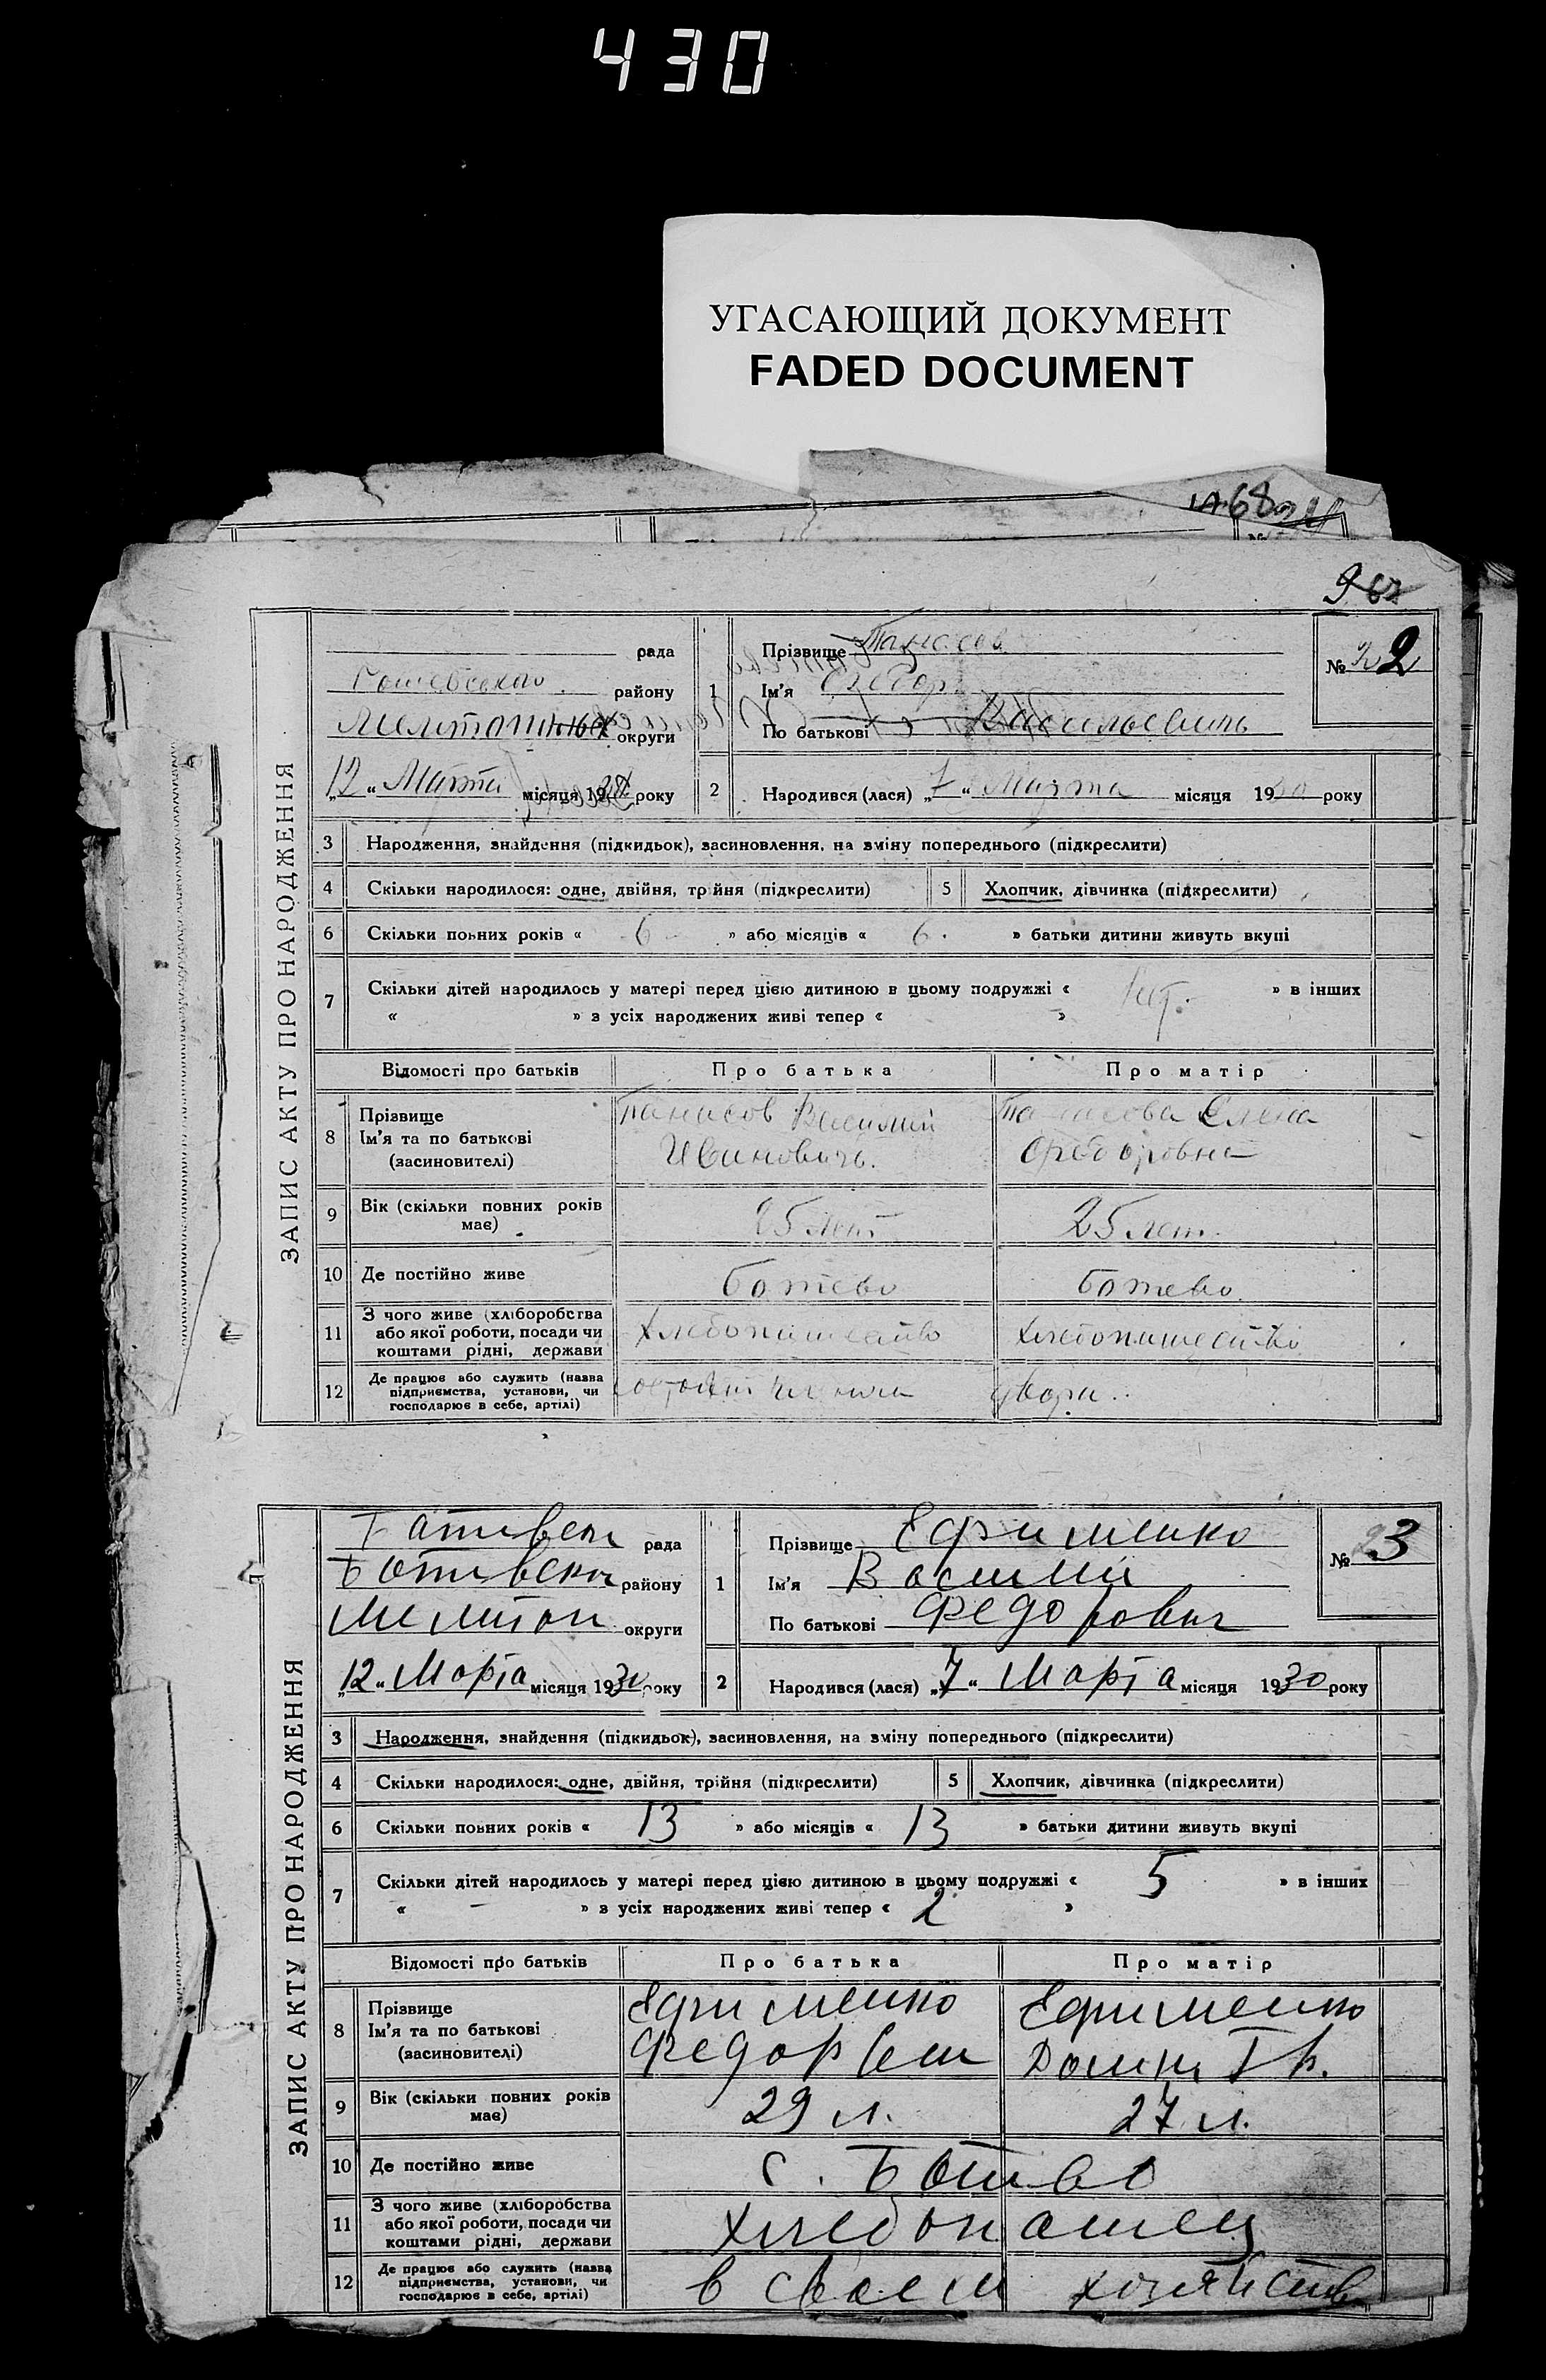 430
УГАСАЮЩИЙ ДОКУМЕНТ
FADED DOCUMENT
ЗАПИС АКТУ ПРО НАРОДЖЕННЯ
рада
району
округи
„12“ Марта місяця 19 року
1 Прізвище Танасов
Ім'я Федор
По батькові Васильевичь
№ 2
2 Народився (лася) „7“ Марта місяця 1930 року
3 Народження, знайдення (підкидьок), засиновлення, на зміну попереднього (підкреслити)
4 Скільки народилося: одне, двійня, трійня (підкреслити)
5 Хлопчик, дівчинка (підкреслити)
6 Скільки повних років « 6 » або місяців « 6 » батьки дитини живуть вкупі
7 Скільки дітей народилось у матері перед цією дитиною в цьому подружжі « » в інших
« » з усіх народжених живі тепер « »
Відомості про батьків Про батька Про матір
8 Прізвище Ім'я та по батькові (засиновителі)
Танасов Василий Ивановичь.
Танасова Елена Федоровна
9 Вік (скільки повних років має) 25 лет 25 лет.
10 Де постійно живе Ботево Ботево.
11 З чого живе (хліборобства або якої роботи, посади чи коштами рідні, держави Хлебопашество Хлебопашество
12 Де працює або служить (назва підприємства, установи, чи господарює в себе, артілі) двора..
ЗАПИС АКТУ ПРО НАРОДЖЕННЯ
рада
району
Мелитоп округи
„12“ Марта місяця 1930 року
1 Прізвище Ефименко
Ім'я Василий
По батькові Федорович
№ 3
2 Народився (лася) „7“ Марта місяця 1930 року
3 Народження, знайдення (підкидьок), засиновлення, на зміну попереднього (підкреслити)
4 Скільки народилося: одне, двійня, трійня (підкреслити)
5 Хлопчик, дівчинка (підкреслити)
6 Скільки повних років « 13 » або місяців « 13 » батьки дитини живуть вкупі
7 Скільки дітей народилось у матері перед цією дитиною в цьому подружжі « 5 » в інших
« — » з усіх народжених живі тепер « 2 »
Відомості про батьків Про батька Про матір
8 Прізвище Ім'я та по батькові (засиновителі)
Ефименко Федор
Ефименко
9 Вік (скільки повних років має) 29 л. 27 л.
10 Де постійно живе с. Ботево
11 З чого живе (хліборобства або якої роботи, посади чи коштами рідні, держави хлебопашец
12 Де працює або служить (назва підприємства, установи, чи господарює в себе, артілі) в своем хозяйстве